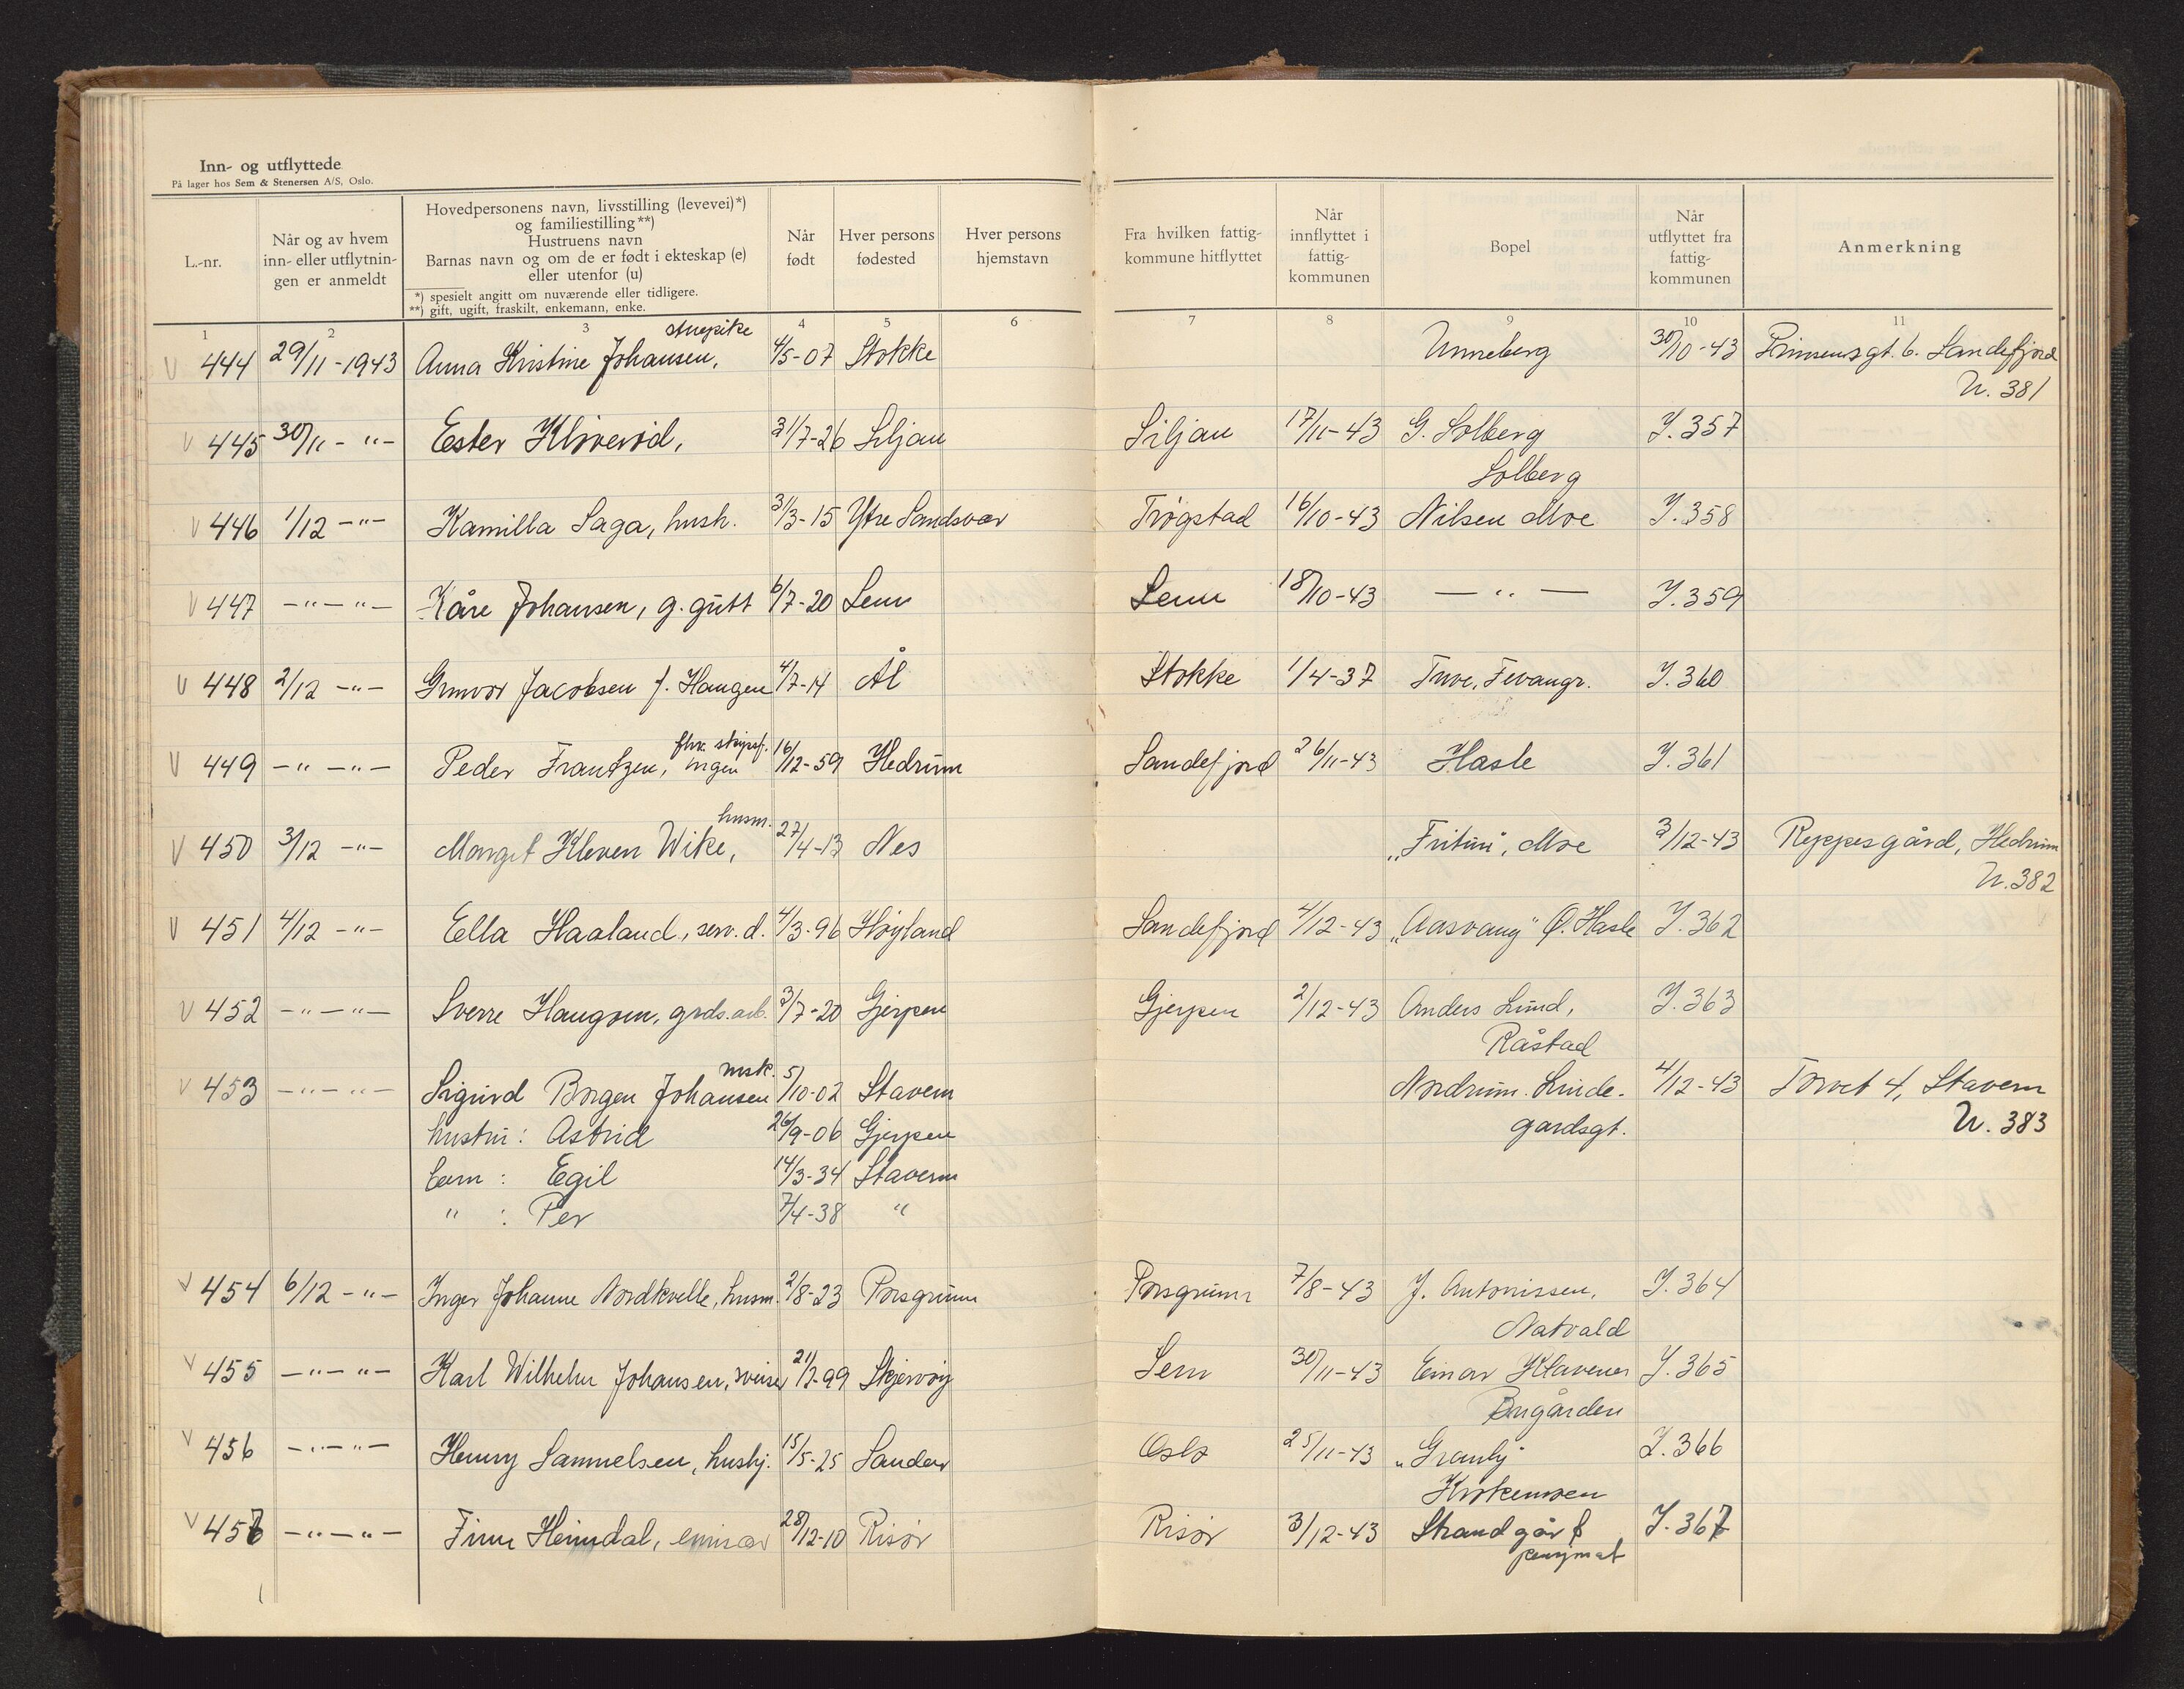 Inn- og utflyttede
På lager hos Sem & Stenersen A/S, Oslo.
L.-nr.
Når og av hvem
inn- eller utflytnin-
gen er anmeldt
Hovedpersonens navn, livsstilling (levevei)*)
og familiestilling**)
Hustruens navn
Barnas navn og om de er født i ekteskap (e)
eller utenfor (u)
*) spesielt angitt om nuværende eller tidligere.
**) gift, ugift, fraskilt, enkemann, enke.
Når
født
Hver persons
fødested
Hver persons
hjemstavn
Fra hvilken fattig-
kommune hitflyttet
Når
innflyttet i
fattig-
kommunen
Bopel
Når
utflyttet fra
fattig-
kommunen
Anmerkning
1 2 3 4 5 6 7 8 9 10 11
stuepike
V 444 29/11-1943 Anna Kristine Johansen, 4/5-07 Stokke Unneberg 30/10-43 Prinsensgt. 6. Sandefjord
U. 381
V 445 30/11 - " - Ester Kloverød, 31/7-26 Siljan Siljan 17/11-43 G. Solberg J. 357
Solberg
V 446 1/12 - " - Kamilla Saga, hush. 3/3-15 Ytre Sandsvær Trøgstad 16/10-43 Nilsen Moe J. 358
V 447 - " - " - Kåre Johansen, g. gutt 6/7-20 Sem Sem 18/10-43 - " - J. 359
V 448 2/12 - " - Gunvor Jacobsen f. Haugen 4/7-14 Ål Stokke 1/4-37 Tuve, Fevangr. J. 360
fhv. skipsf.
V 449 - " - " - Peder Frantzen, ingen 16/12-59 Hedrum Sandefjord 26/11-43 Hasle J. 361
husm.
V 450 3/12 - " - Margit Kleven Wike, 27/4-13 Nes „Fritun", Moe 3/12-43 Reppesgård, Hedrum
U. 382
V 451 4/12 - " - Ella Haaland, serv. d. 4/3-96 Høyland Sandefjord 4/12-43 „Aasvang" Ø. Hasle J. 362
V 452 - " - " - Sverre Haugom, grds. arb. 3/7-20 Gjerpen Gjerpen 2/12-43 Anders Lund, J. 363
Råstad
msk.
V 453 - " - " - Sigurd Borgen Johansen 5/10-02 Stavern Nordrum. Linde- 4/12-43 Torvet 4, Stavern
hustru: Astrid 26/9-06 Gjerpen gardsgt. U. 383
barn : Egil 14/3-34 Stavern
" : Per 7/4-38 "
V 454 6/12 - " - Inger Johanne Nordkvelle, husm. 2/8-23 Porsgrunn Porsgrunn 7/8-43 J. Antonissen, J. 364
Natvald
V 455 - " - " - Karl Wilhelm Johansen, sveiser 21/7-99 Skjervøy Sem 30/11-43 Einar Klavenes J. 365
Bugården
V 456 - " - " - Henny Samuelsen, hushj. 15/5-25 Sandar Oslo 25/11-43 „Granly" J. 366
Krokemoen
V 457 - " - " - Finn Heimdal, emisær 28/12-10 Risør Risør 3/12-43 Strandgår J. 367
pensjonat